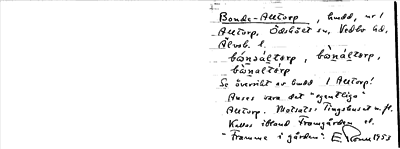 Bonde-Alltorp, hmd, nr 1
Alltorp, Ödskölt sn, Vedbo hd,
Älvsb. l.
bònₔáltòrp, bònáltòrp,
bònaltòrp
Se översikt av hmd 1 Alltorp!
Anses vara det "egentliga"
Alltorp. Motsats: Tingshuset m.fl.
Kallas ibland Framgården el.
"Framme i gården". E 1953